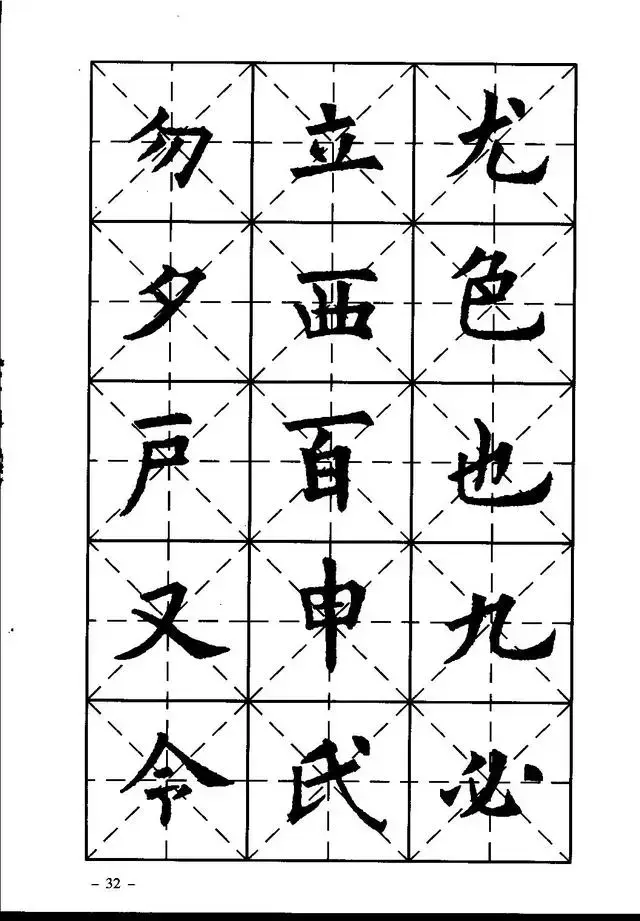 尤色也九必
立西百申氏
勿夕戸又令
– 32 –